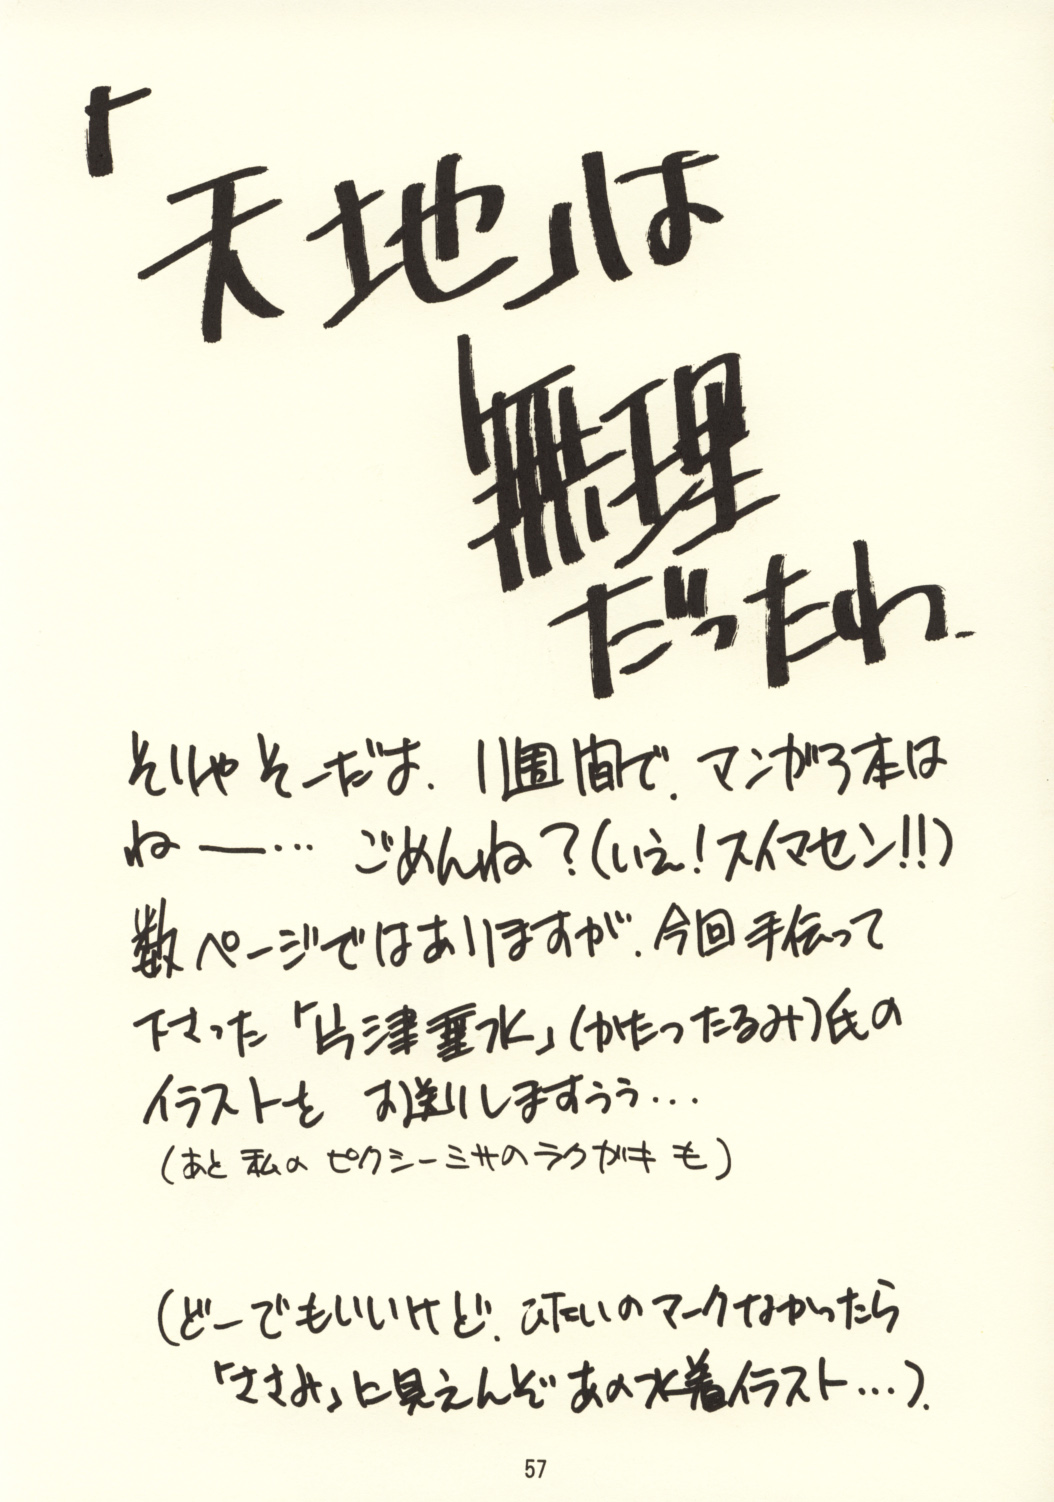 「天地」は
「無理
だったわ
そりゃそーだな、1週間で、マンガ3本は
ね――… ごめんね?(いえ!スイマセン!!)
数ページではありますが、今回手伝って
下さった「片津垂水」(かたつたるみ)氏の
イラストを お送りしますぅぅ…
(あと私の ピクシーミサのラクガキも)
(どーでもいいけど、ひたいのマークなかったら
「ささみ」に見えんぞあの水着イラスト…).
57